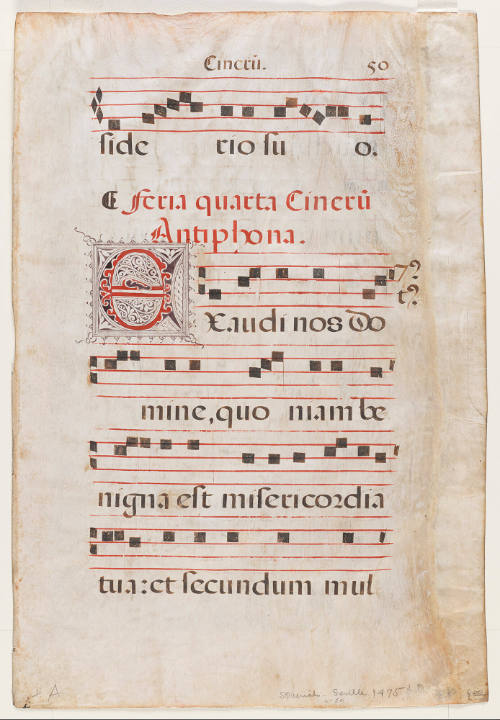 Cinerũ. 50
side rio su o.
C feria quarta Cinerũ
Antiphona.
Exaudi nos do
mine, quo niam be
nigna est misericordia
tua: et secundum mul
A Spanish - Seville 1475